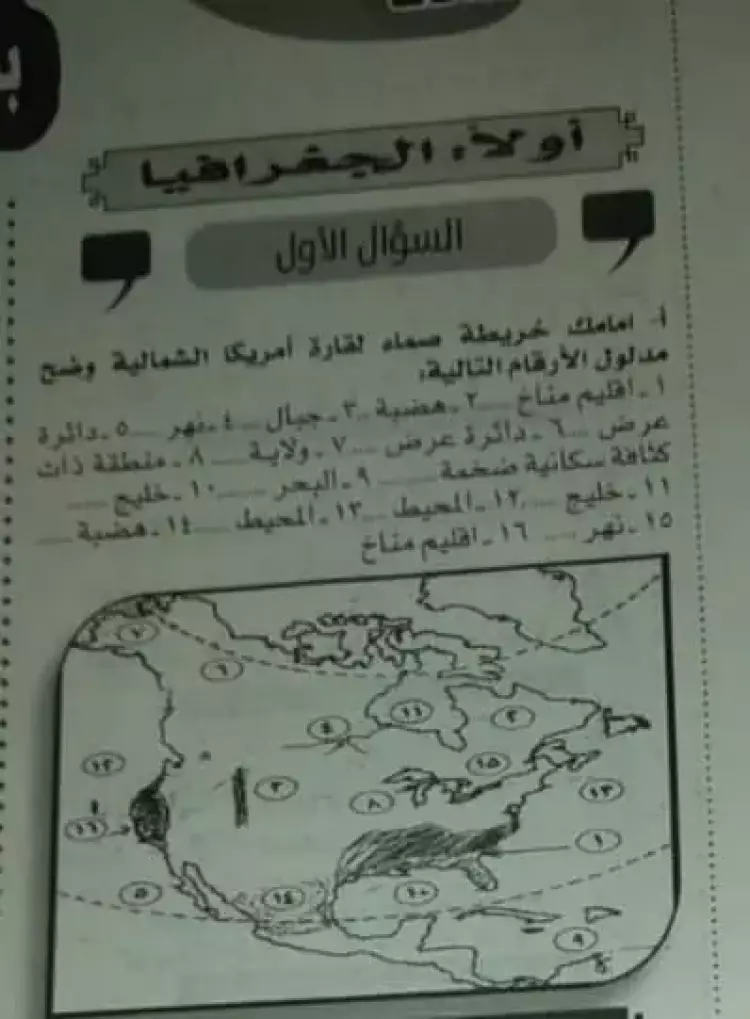 أولاً: الجغرافيا
السؤال الأول
أ- امامك خريطة صماء لقارة أمريكا الشمالية وضح
مدلول الأرقام التالية:
١ـ اقليم مناخ ..... ٢ـ هضبة ..... ٣ـ جبال ..... ٤ـ نهر ..... ٥ـ دائرة
عرض ..... ٦ـ دائرة عرض ..... ٧ـ ولاية ..... ٨ـ منطقة ذات
كثافة سكانية ضخمة ..... ٩ـ البحر ..... ١٠ـ خليج .....
١١ـ خليج ..... ١٢ـ المحيط ..... ١٣ـ المحيط ..... ١٤ـ هضبة .....
١٥ـ نهر ..... ١٦ـ اقليم مناخ
٧
٦
٤
١١
٢
١٥
١٢
٣
٨
١٣
١٦
١
٥
١٤
١٠
٩